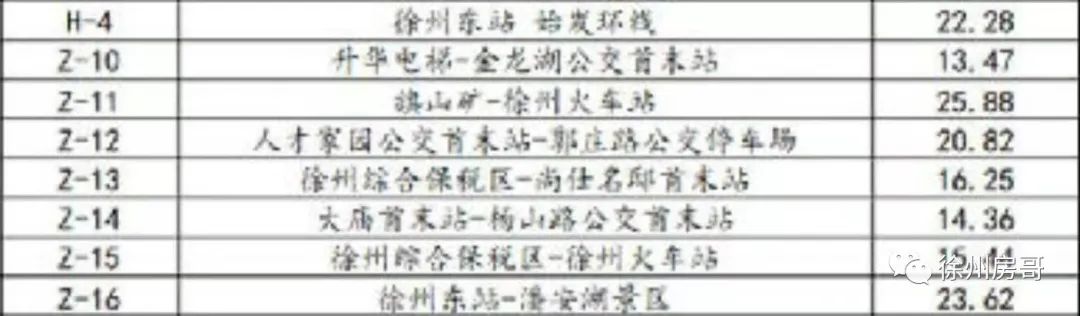 H-4 徐州东站 始发环线 22.28
Z-10 升华电梯-金龙湖公交首末站 13.47
Z-11 旗山矿-徐州火车站 25.88
Z-12 人才家园公交首末站-郭庄路公交停车场 20.82
Z-13 徐州综合保税区-尚仕名邸首末站 16.25
Z-14 大庙首末站-杨山路公交首末站 14.36
Z-15 徐州综合保税区-徐州火车站 15.44
Z-16 徐州东站-潘安湖景区 23.62
徐州房哥